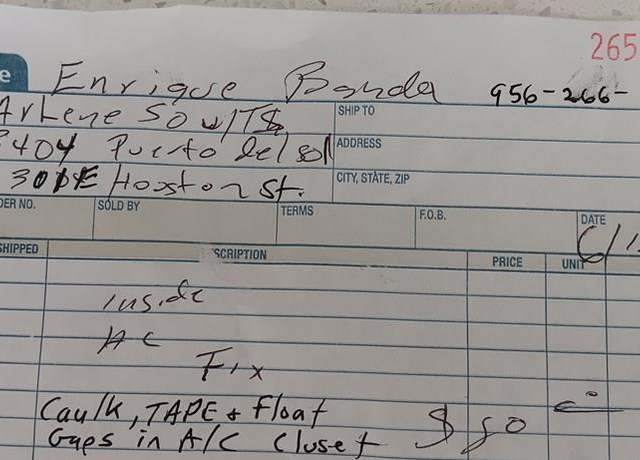 265
e Enrique Banda 956-266-
Arlene SHIP TO
404 Puerto del sol ADDRESS
E Houston St. CITY, STATE, ZIP
DER NO. SOLD BY TERMS F.O.B. DATE
6/1
SHIPPED SCRIPTION PRICE UNIT
inside
AC
Fix
Caulk, TAPE & Float $
Gaps in A/C Closet